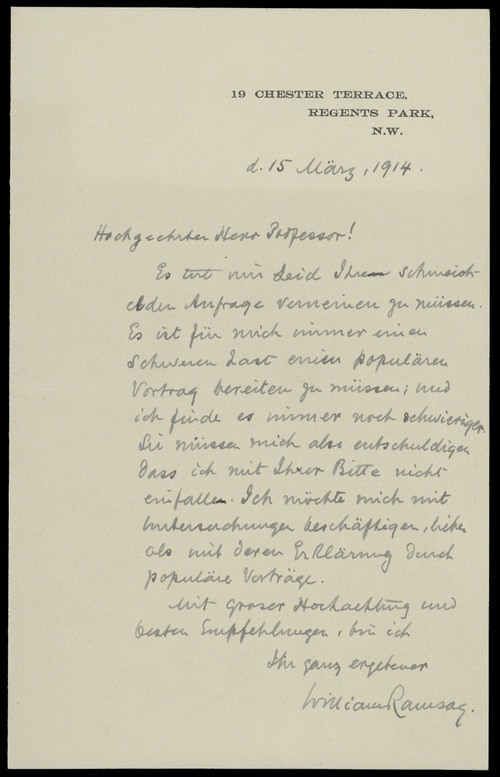 19 CHESTER TERRACE,
REGENTS PARK,
N.W.
d. 15 März, 1914.
Hochgeehrter Herr Professor!
Es tut mir Leid Ihrem schmeich-
elnden Anfrage verneinen zu müssen.
Es ist für mich immer einen
schweren Last einen populären
Vortrag bereiten zu müssen; und
ich finde es immer noch schwieriger.
Sie müssen mich also entschuldigen
dass ich mit Ihrer Bitte nicht
einfalle. Ich möchte mich mit
Untersuchungen beschäftigen, lieber
als mit deren Erklärung durch
populäre Vorträge.
Mit groser Hochachtung und
besten Empfehlungen, bin ich
Ihr ganz ergebener
William Ramsay.